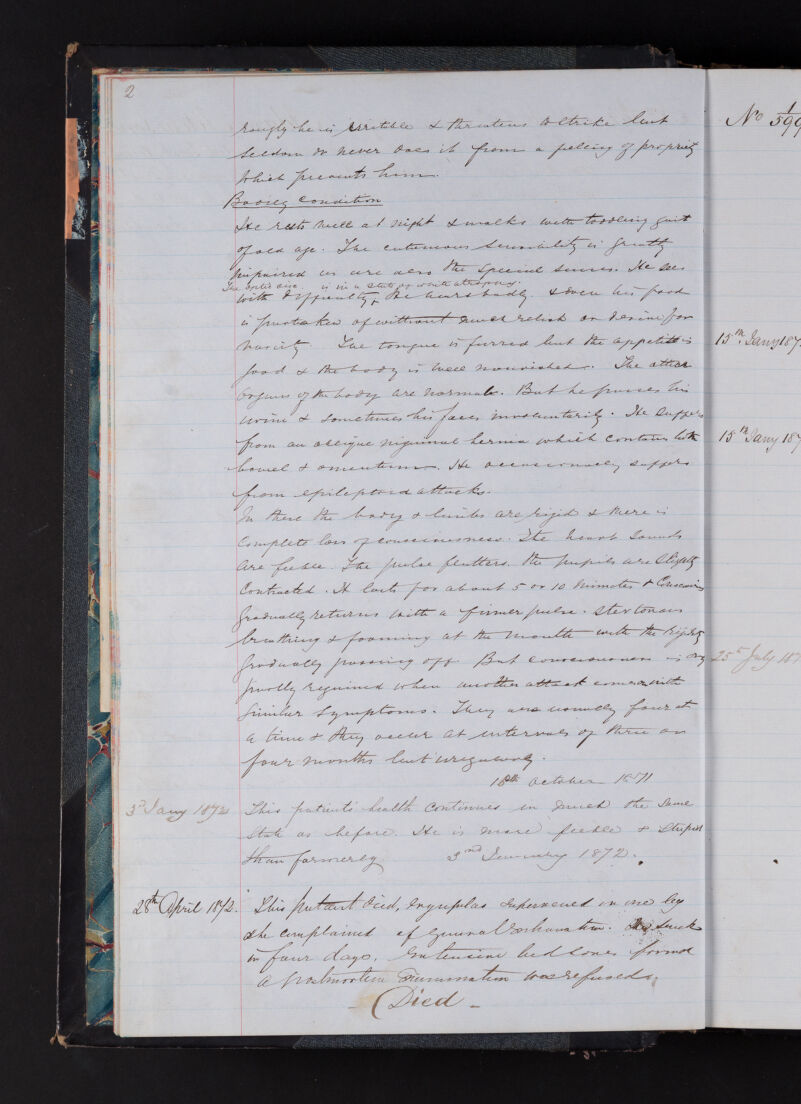 2
roughly he is irritable & threatens to strike but
seldom or never does it from a feeling of propriety
which prevents him.
Bodily Condition
He rests well at night & walks with toddling gait
of old age. The cutaneous sensibility is greatly
impaired as are also the special senses. He sees
The optic disc is in a state of white atrophy.
with difficulty, He hears badly. & even his food
is partaken of without much relish or desire for
variety. The tongue is furred but the appetite is
good & the body is well nourished. The other
organs of the body are normal. But he passes his
urine & sometimes his faeces involuntarily. He suffers
from an oblique inguinal hernia which contains both
bowel & omentum. He occasionally suffers
from epileptoid attacks.
In these the body & limbs are rigid & there is
complete loss of consciousness. The heart sounds
are feeble. The pulse flutters. the pupils are slightly
contracted. It lasts for about 5 or 10 minutes &
gradually returns with a firmer pulse. Stertorous
breathing & foaming at the mouth with the rigidity
gradually passing off. But consciousness is only
partly regained when another attack comes with
similar symptoms. They are usually four at
a time & they occur at intervals of three or
four months but irregularly.
18th October 1871
3rd Jany 1872 This patient's health continues in much the same
state as before. He is more feeble & stupid
than formerly. 3rd January 1872.
28th April 1872. This patient died, Erysipelas supervened on one leg
she complained of general exhaustion. sunk
in four days. Extensive bed sores formed
a postmortem Examination was refused.
Died
No 1/599
15th Jany 187
15th Jany 187
25th July 187